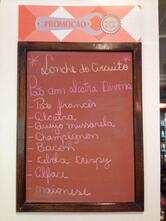 PROMOÇÃO
* Lanche do Circuito *
Pão com alcatra Divina
- Pão francês
- Alcatra
- Queijo mussarela
- Champignon
- Bacon
- Cebola Crispy
- Alface
- maionese